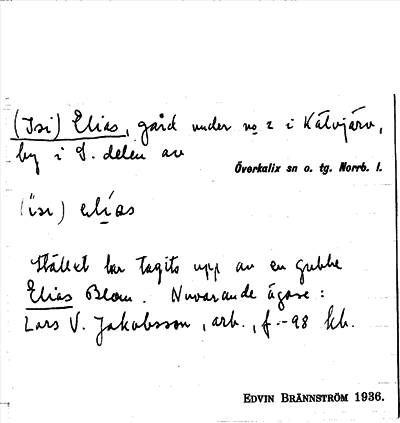 (Isi) Elias, gård under no 2 i Kälvjärv,
by i S. delen av
Överkalix sn o. tg. Norrb. l.
(isi) elías
Stället har tagits upp av en gubbe
Elias Blom. Nuvarande ägare:
Lars V. Jakobsson, arb., f. -98 kb.
EDVIN BRÄNNSTRÖM 1936.